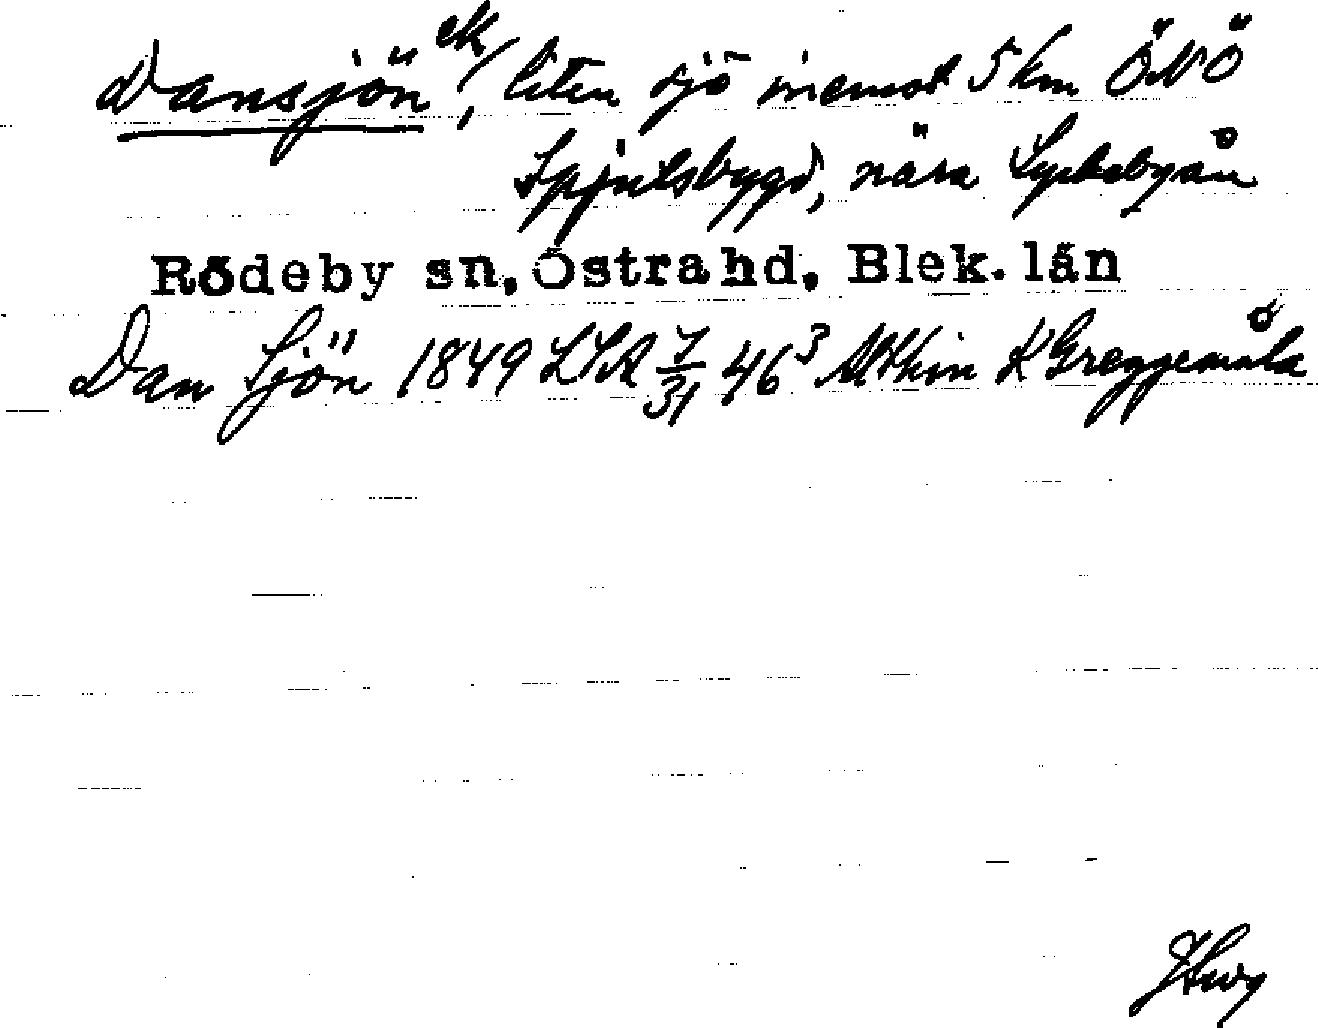 Dansjön ek/, liten sjö inemot 5 km ÖNÖ
Spjutsbygd, nära Lyckebyån
Rödeby sn, Östra hd, Blek. län
Dan Sjön 1849 LSA 7/31 46³ K Greggemåla